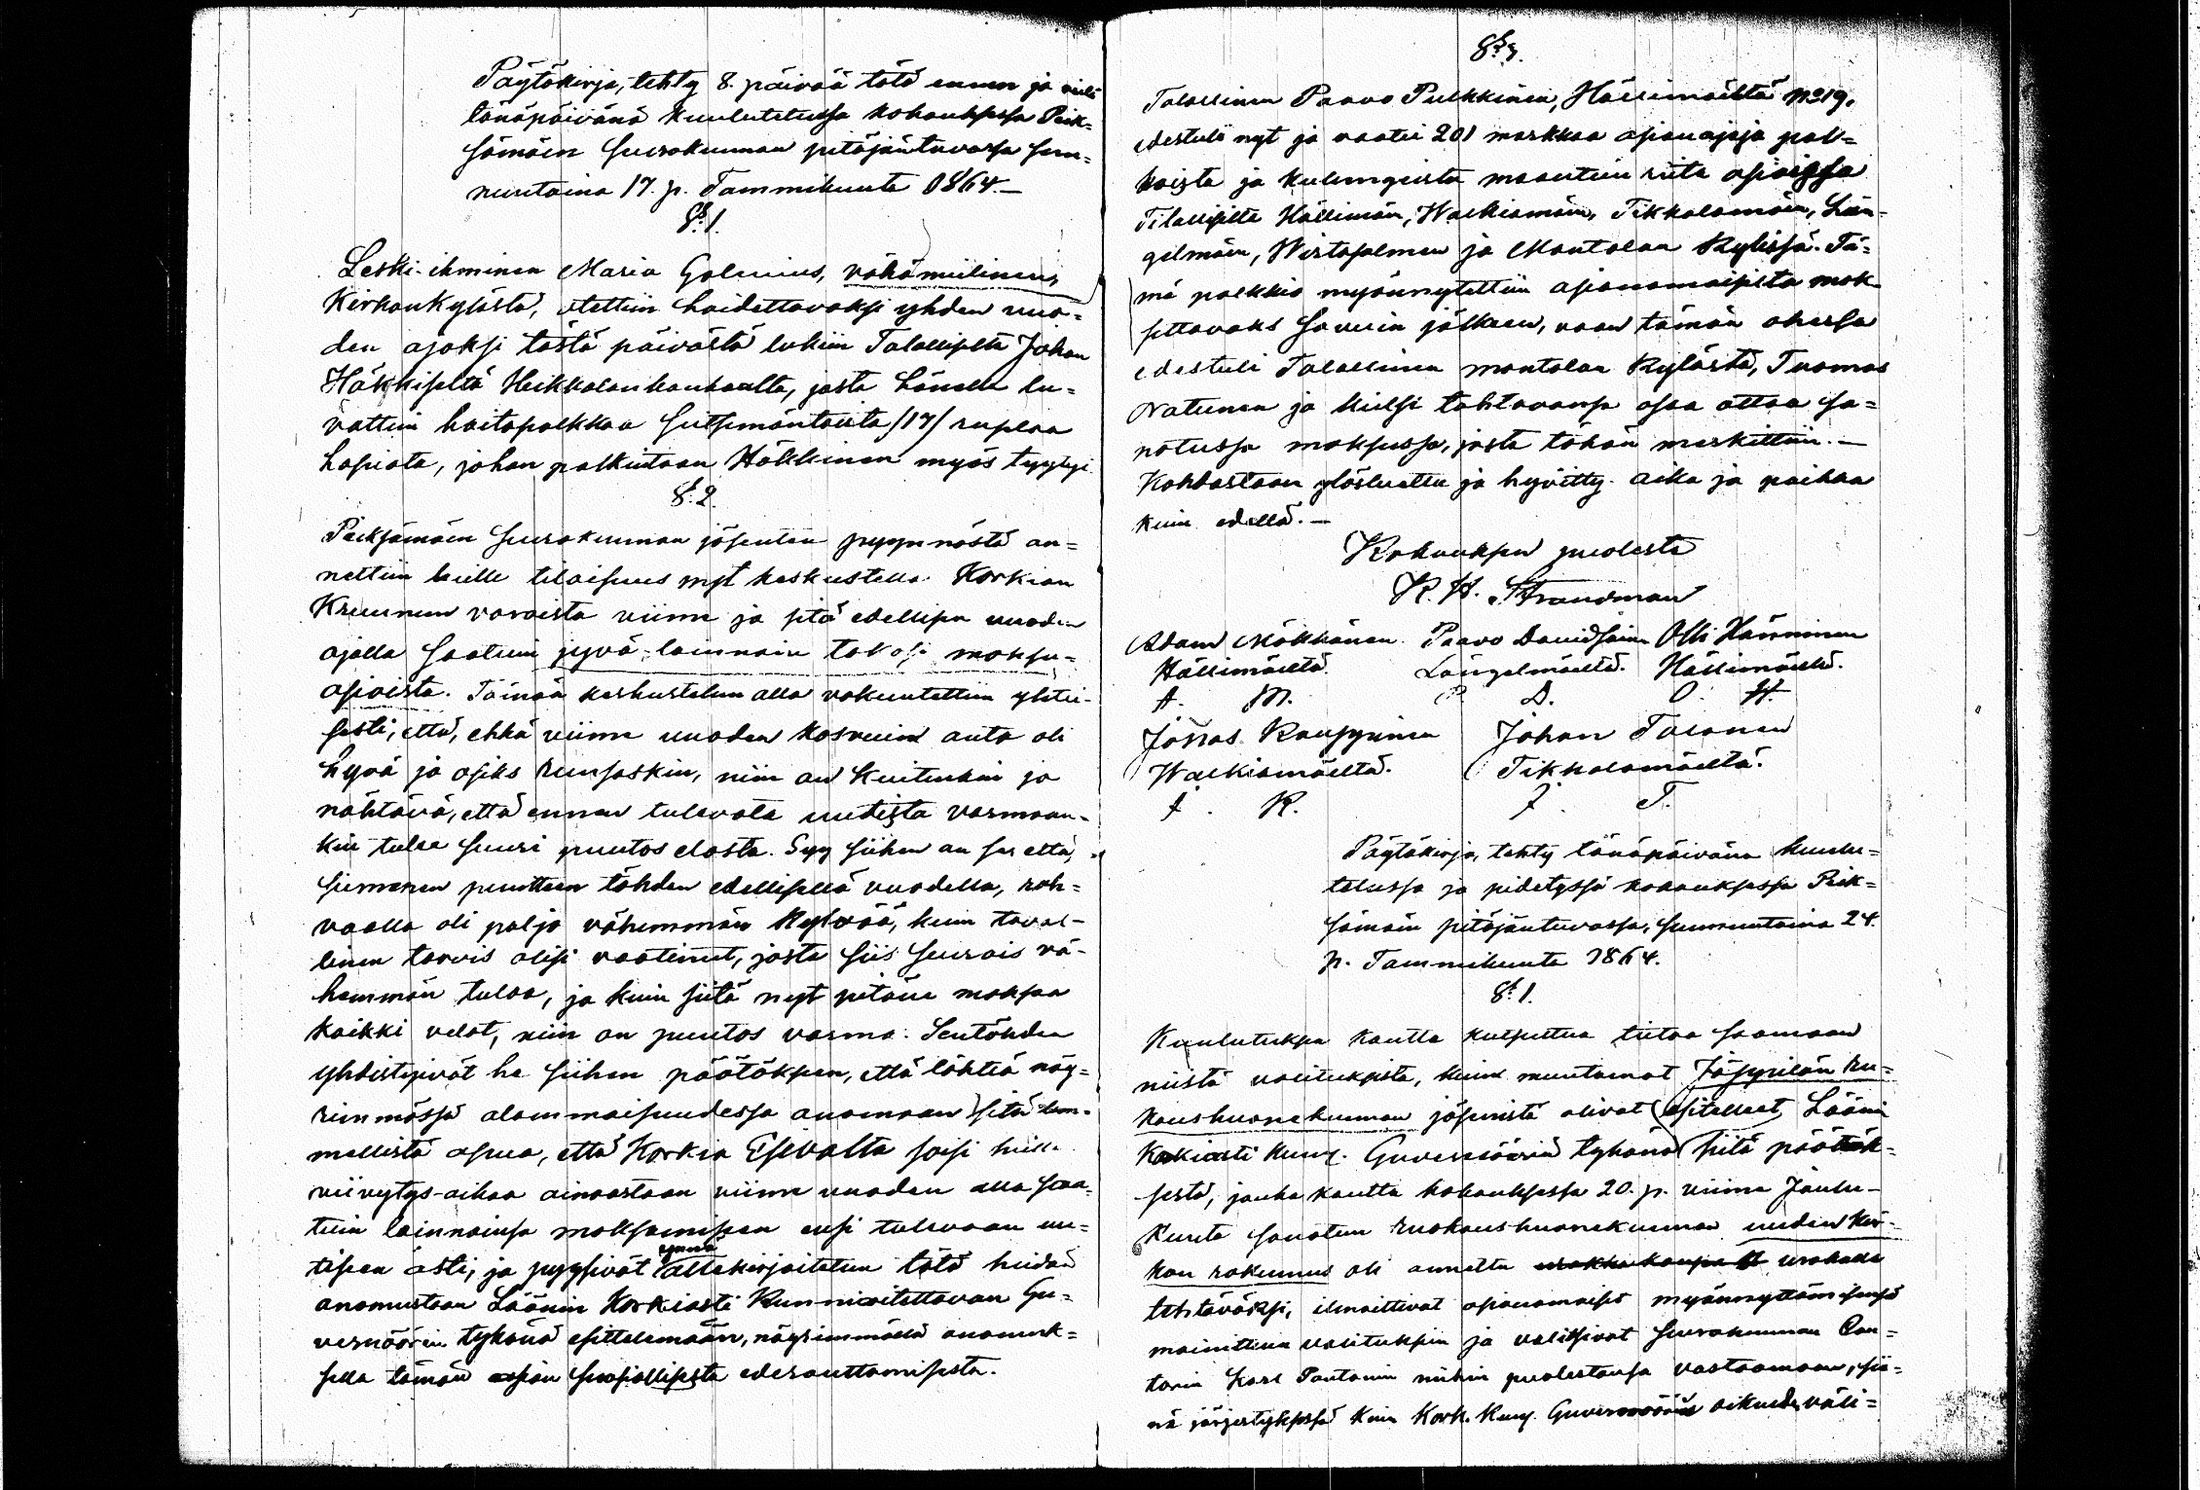 Pöytäkirja, tehty 8. päivää tätä ennen ja vielä
tänäpäivänä kuulutetussa kokouksessa Piek-
sämäen seurakunnan pitäjäntuvassa sun-
nuntaina 17. p. Tammikuuta 1864.—
§ 1.
Leski-ihminen Maria Galenius, vähämielinen,
Kirkonkylästä, otettiin hoidettavaksi yhden vuo-
den ajaksi tästä päivästä lukein Talolliselta Johan
Häkkiseltä Heikkolan kankaalta, josta hänelle lu-
vattiin hoitopalkkaa seitsemäntoista /17/ ruplaa
hopiata, johon palkintoon Häkkinen myös tyytyi.
§. 2.
Pieksämäen seurakunnan jäsenten pyynnöstä an-
nettiin heille tilaisuus nyt keskustella Korkian
Kruunun varoista viime ja sitä edellisen vuoden
ajalla saatuin jyvä-lainnain takasi maksu-
asioista. Tämän keskustelun alla vakuutettiin yhtei-
sesti, että, ehkä viime vuoden kasvuin anto oli
hyvä ja osiks runsaskin, niin on kuitenkin jo
nähtävä, että ennen tulevata uutista varmaan-
kin tulee suuri puutos elosta. Syy siihen on se että,
siemenen puutteen tähden edellisellä vuodella, rah-
vaalla oli paljo vähemmän kylvöä, kuin taval-
linen tarvis olisi vaatinut, josta siis seurais vä-
hemmän tuloa, ja kuin siitä nyt pitäis maksaa
kaikki velat, niin on puutos varma. Sentähden
yhdistyivät he siihen päätökseen, että lähteä näy-
rimmässä alammaisuudessa anomaan sitä ar-
mollista apua, että Korkia Esivalta soisi heille
viivytys-aikaa ainoastaan viime vuoden alla saa-
tuin lainnainsa maksamiseen ensi tulevaan uu-
tiseen asti, ja pyysivät allekirjoitetun tätä heidän
anomustaan Läänin Korkiasti Kunnioitettavan Gu-
vernöörin tykönä esittelemään, näyrimmällä anomuk-
sella tämän asian suosiollisesta edesauttamisesta.
§ 3.
Talollinen Paavo Pulkkinen, Hällinmäeltä No 19,
edestuli nyt ja vaatei 201 markkaa asianajaja pal-
koista ja kulungeista maantien riita asioissa
Tilallisilta Hällimäen, Walkiamäen, Tikkalamäen, Län-
gelmäen, Wirtasalmen ja Montolan kylissä. Tä-
mä palkkio myönnytettiin asianomaisilta mak-
settavaks savuin jälkeen, vaan tämän ohessa
edestuli Talollinen Montolan kylästä, Tuomas
Natunen ja kielsi tahtovansa osaa ottaa sa-
notussa maksussa, josta tähän merkittiin.—
Kohdastaan ylösluettu ja hyvitty. aika ja paikka
kuin edellä.—
Kokouksen puolesta
K. H. Strandman
Adam Mökkönen Paavo Davidsain Olli Hänninen
Hällimäeltä. Längelmäeltä. Hällimäeltä.
A. M. P. D. O. H.
Jönas Kauppinen Johan Talonen
Walkiamäeltä. Tikkalamäeltä.
J. K. J. T.
Pöytäkirja, tehty tänäpäivänä kuulu-
tetussa ja pidetyssä kokouksessa Piek-
sämäen pitäjäntuvassa, sunnuntaina 24.
p. Tammikuuta 1864.
§ 1.
Kuulutuksen kautta kutsuttua tietoa saamaan
niistä valituksista, kuin muutamat Jäppilän ru-
koushuonekunnan jäsenistä olivat esitelleet Läänin
Korkiasti kunn. Guvernöörin tykönä siitä päätök-
sestä, jonka kautta kokouksessa 20. p. viime Joulu-
kuuta sanotun rukoushuonekunnan uuden kir-
kon rakennus oli annettu urakalla
tehtäväksi, ilmoittivat asianomaiset myönnyttämisensä
mainittuun valituksiin ja valitsivat seurakunnan Can-
torin Karl Pantonin niihin puolestansa vastaamaan, sii-
nä järjestyksessä kuin Kork. kunn. Guvernöörin oikeude väli-